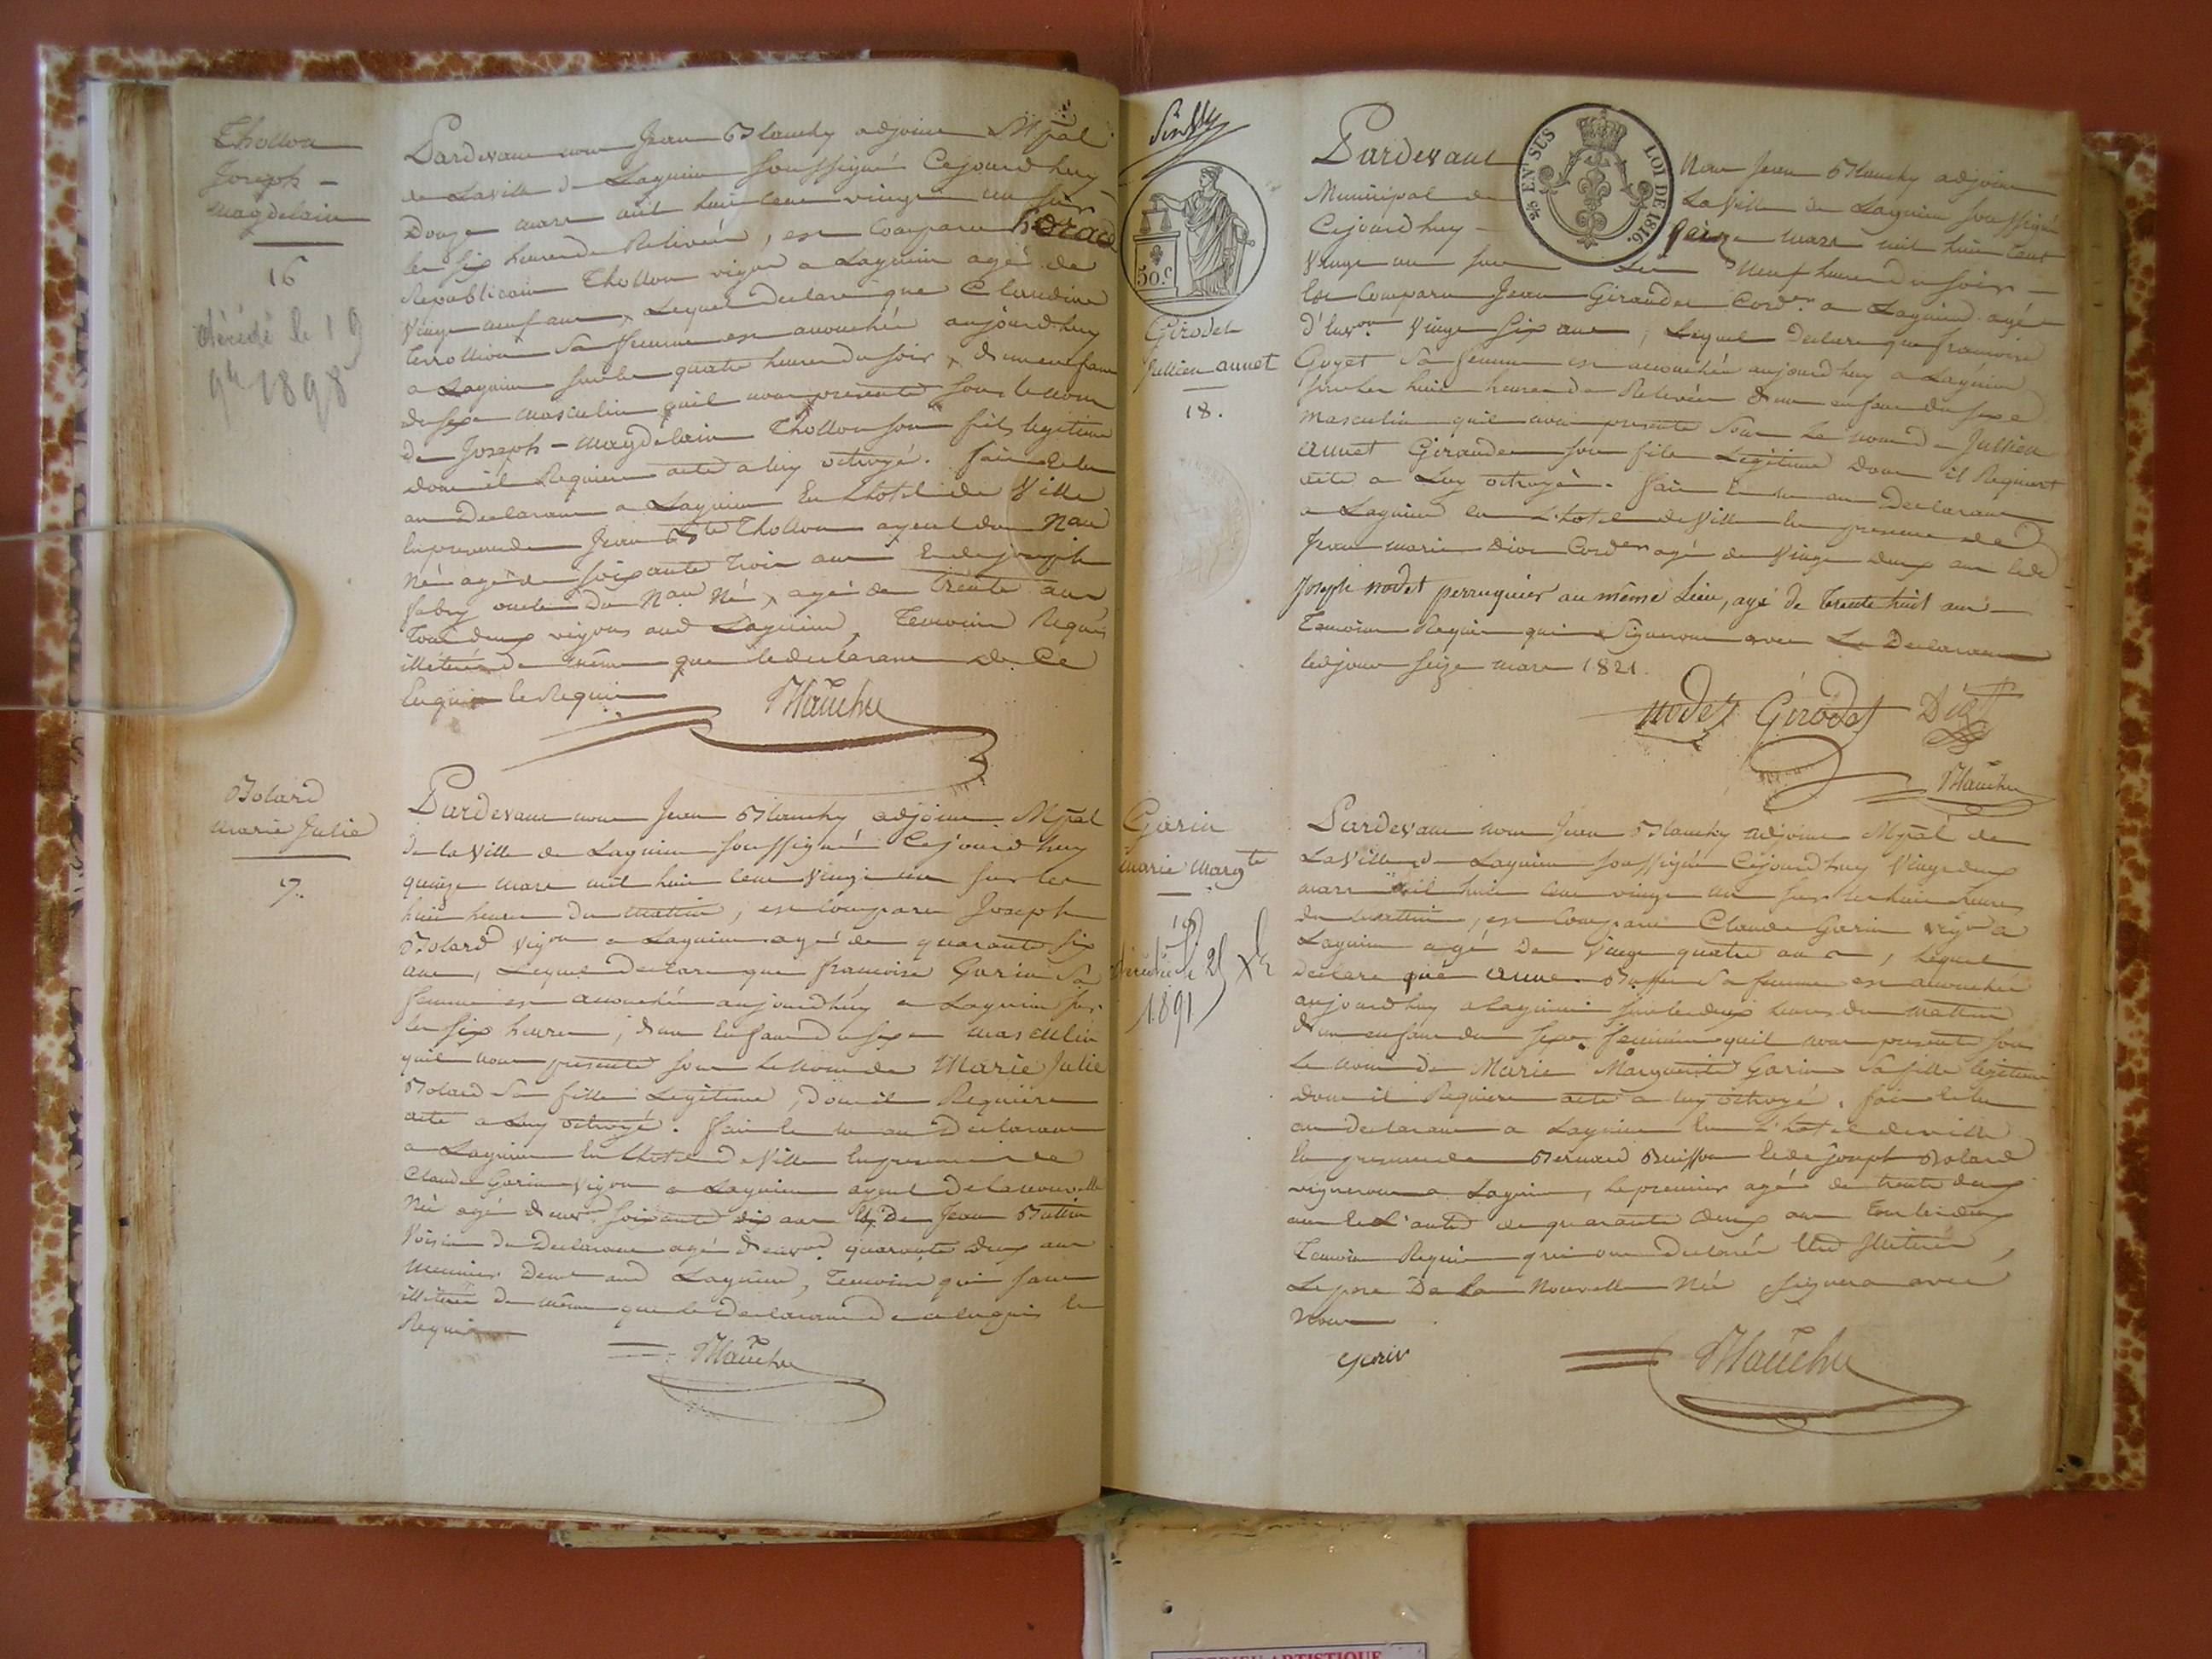 Thollon
Joseph -
Magdelain
16
décédé le 19
9h 1898
Pardevant nous Jean Blanchy adjoint Mpal
de La Ville de Lagnieu Soussigné Cejourd'huy
Douze mars mil huit cent vingt un sur
les six heures de Relivée, est Comparu horace
Republicain Thollon vigon a Lagnieu agé de
Vingt neuf ans, Lequel Declare que Claudine
sa femme est accouchée aujourd'huy
a Lagnieu sur les quatre heures du soir, d'un enfant
du sexe masculin quil nous presente sous le nom
de Joseph - Magdelain Thollon son fils legitime
dont il Requiert acte a luy octroyé. fait et lu
au Declarant a Lagnieu En L'hotel de Ville
En presence de Jean Bte Thollon ayeul du Nau
Né agé de soixante trois ans Et de joseph
fabry oncle du Nau Né, agé de trente ans
tous deux vigons aud Lagnieu, Temoins Requis
illitérés de même que le declarant de Ce
Enquis le Requis
Blanchy
Bolard
Marie Julie
7.
Pardevant nous Jean Blanchy adjoint Mpal
de la Ville de Lagnieu soussigné Cejourd'huy
quinze mars mil huit cent Vingt un sur les
huit heures du matin, est Comparu Joseph
Bolard Vigon a Lagnieu agé de quarante six
ans, Lequel Declare que francoise Garin Sa
femme est accouchée aujourdhuy a Lagnieu sur
les six heures, d'un Enfant du sexe masculin
quil nous presente sous le nom de Marie Julie
Bolard Sa fille Legitime, dont il Requiere
acte a Luy octroyé. fait et lu au Declarant
a Lagnieu En L'hotel de Ville En presence de
Claude Garin Vigon a Lagnieu ayeul de la nouvelle
Né agé d'envon soixante dix ans Et De Jean
Voisin du Declarant agé d'envon quarante deux ans
meunier demt aud Lagnieu, Temoins qui sont
illitérés de même que le Declarant de ce enquis le
Requis
Blanchy
50c
2/5 EN SUS
LOI DE 1816.
Girodet
Jullien annet
18.
Pardevant Nous Jean Blanchy adjoint
Municipal de La Ville de Lagnieu soussigné
Cejourd'huy - mars mil huit Cent
Vingt un sur Les Neuf heures du soir -
Est Comparu Jean Giraudet Cordr a Lagnieu agé
d'Envon Vingt six ans, Lequel Declare que francoise
Goyet Sa femme est accouchée aujourd'huy a Lagnieu
sur les huit heures de Relivée d'un enfant du sexe
Masculin quil nous presente Sous Le nom de - Jullien
annet Giraudet son fils Legitime dont il Requiert
acte a Luy octroyé. fait Et lu au Declarant
a Lagnieu En L'hotel de Ville En presence de
Jean marie Diot Corder agé de Vingt deux ans et de
Joseph nodet perruquier au même Lieu, agé de trente huit ans
Temoins Requis qui Signeront avec Le Declarant
ledjour seize mars 1821.
nodet Girodet Diot
Blanchy
Garin
marie Margte
19
Décédée le 25 Xbre
1891
Pardevant nous Jean Blanchy adjoint Mpal de
La Ville de Lagnieu soussigné Cejourd'huy Vingt deux
mars mil huit cent vingt un sur les huit heures
du matin, est Comparu Claude Garin vigon a
Lagnieu agé De Vingt quatre ans, Lequel
Declare que anne Sa femme est accouchée
aujourd'huy a Lagnieu sur les deux heures du mattin
d'un enfant du sexe feminin quil nous presente sous
Le nom de Marie Marguerite Garin Sa fille legitime
Dont il Requiere acte a luy octroyé. fait et lu
au declarant a Lagnieu En L'hotel de ville
En presence de Bernard Buisson et de Joseph Bolard
vignerons a Lagnieu, le premier agé de trente deux
ans Et L'autre de quarante deux ans Tous les deux
Temoins Requis qui ont declaré Etre Illitérés,
Le pere De la Nouvelle Née Signera avec
Nous
garin
Blanchy